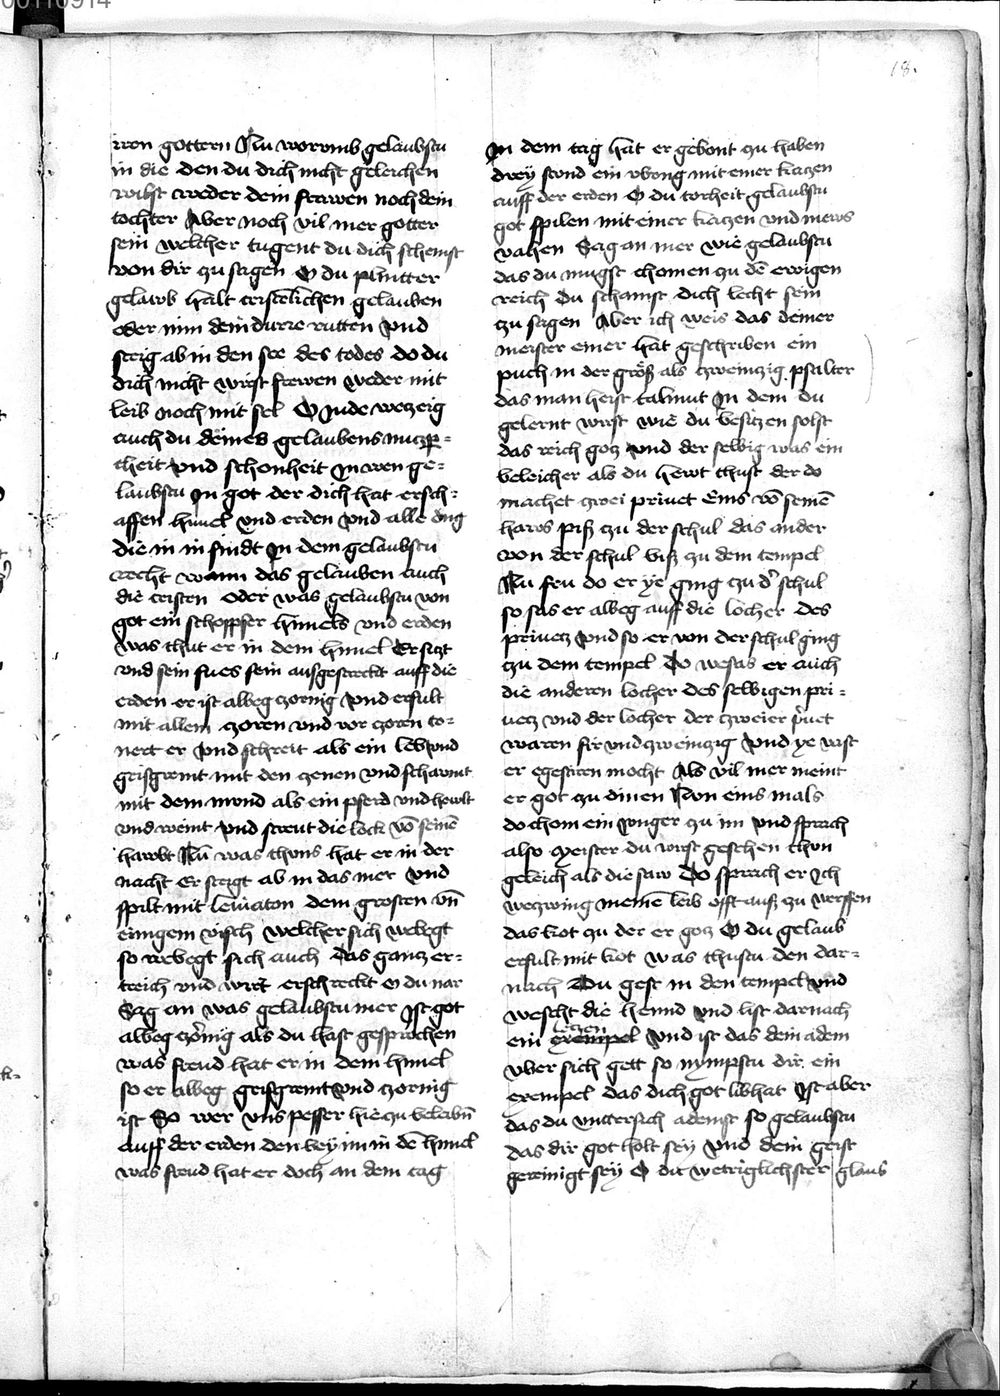 00110914
18.
iren gottern Nu worumb gelaubstu
in die den du dich nicht geleichen
wilst weder dein frawen noch dein
tochter Aber noch vil mer gotter
sein welcher tugent du dich schemst
von dir zu sagen O du plinter
gelawb halt cristelichen gelauben
oder nim dein durre rutten vnd
steig ab in den see des todes do du
dich nicht wirst frewen weder mit
leib noch mit sel O Jude wezeig
auch du deines gelaubens nuczp=
cheit vnd schonheit In wen ge=
laubstu In got der dich hat ersch=
affen himel vnd erden vnd alle ding
die in in sindt In dem gelaubstu
recht wann das gelauben auch
die cristen oder was gelaubstu von
got ein schoppfer himels vnd erden
was thut er in dem himel Er siczt
vnd sein fues sein ausgestreckt auff die
erden er ist albeg zornig vnd erfult
mit allem zoren vnd vor zoren to=
nert er vnd schreit als ein leb vnd
grisgremt mit den zenen vnd schawmt
mit dem mond als ein pferd vnd hewlt
vnd weint vnd streut die lock vō seinē
hawbt Nu was thuns hat er in der
nacht Er steigt ab in das mer vnd
spilt mit leuiaton dem grosten vn̄
einigem visch welcher sich webegt
so webegt sich auch das gancz er=
treich vnd wirt erschreckt O du nar
Sag an was gelaubstu mer Ist got
albeg zornig als du hast gesprochen
was freud hat er in dem himel
so er albeg grisgremt vnd zornig
ist So wer vns pesser hie zu beleibn̄
auff der erden den bey im in dē himel
was freud hat er doch an dem tag
In dem tag hat er gebont zu haben
drey stund ein vbong mit einer kaczen
auff der erden O du torheit gelaubstu
got spilen mit einer kaczen vnd mews
vahen Sag an mer wie gelaubstu
das du mugst chomen zu dē ewigen
reich Du schamst dich lecht sein
zu sagen Aber ich weis das deiner
meister einer hat geschriben ein
puch in der groß als zweinzig psalter
das man heist talmut In dem du
gelernt wirst wie du besitzen solst
das reich gocz vnd der selbig was ein
beleicher als du hewt thust der do
machet zwei priuet Eins vō seinē
haws piß zu der schul das ander
von der schul biß zu dem tempel
Nu seu do er ye ging zu d' schul
so sas er albeg auff die locher des
priuecz vnd so er von der schul ging
zu dem tempel Do wesas er auch
die anderen locher des selbigen pri=
uecz vnd der locher der zweier p'uet
waren fir vnd zweinzig vnd ye vast
er egestiren mocht Als vil mer meint
er got zu dinen Nun eins mals
do chom ein Junger zu im vnd sprach
also Meister du wirst gesehen thun
geleich als die saw Do sprach er Ich
wezwing meinē leib offt auß zu werffen
das kot zu der er gocz O du gelaub
erfult mit kot was thustu den dar=
nach Du gest in den tempel vnd
wescht die hennd vnd list darnach
leczen
ein exempel vnd ist das dein adem
vber sich gett so nympstu dir ein
exempel das dich got lib hat Ist aber
das du vntersich ademst so gelaubstu
das dir got holt sey vnd dein geist
gereinigt sey O du wetriglichster glaub